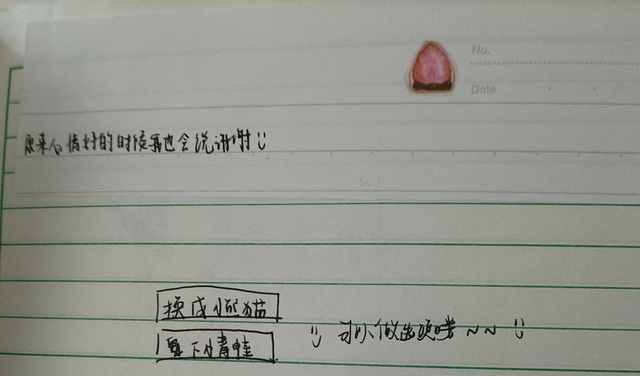 No.
Date
原来心情好的时候我也会说谢谢
换成小野猫
留下小青蛙
可以做出